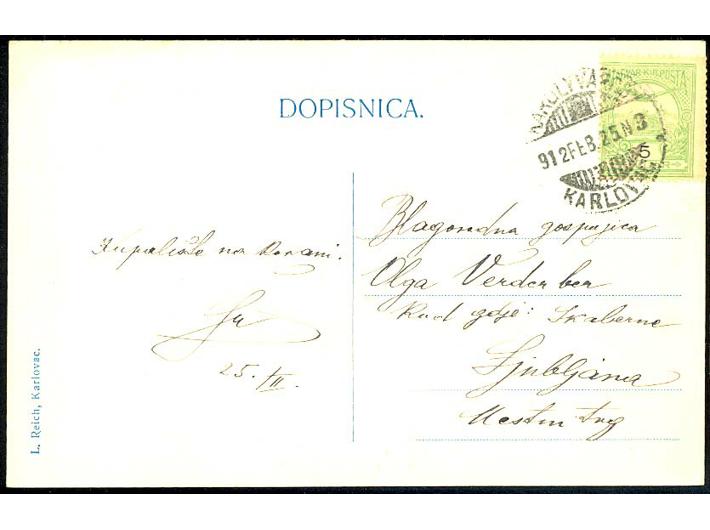 DOPISNICA.
MAGYAR KIR. POSTA
5
KÁROLYVÁROS
912 FEB. 25 N 3
KARLOVAC
Kupalište na Korani.
25./II.
Blagorodna gospojica
Olga Verderber
Kod gdje: Skaberne
Ljubljana
Mestni trg
L. Reich, Karlovac.